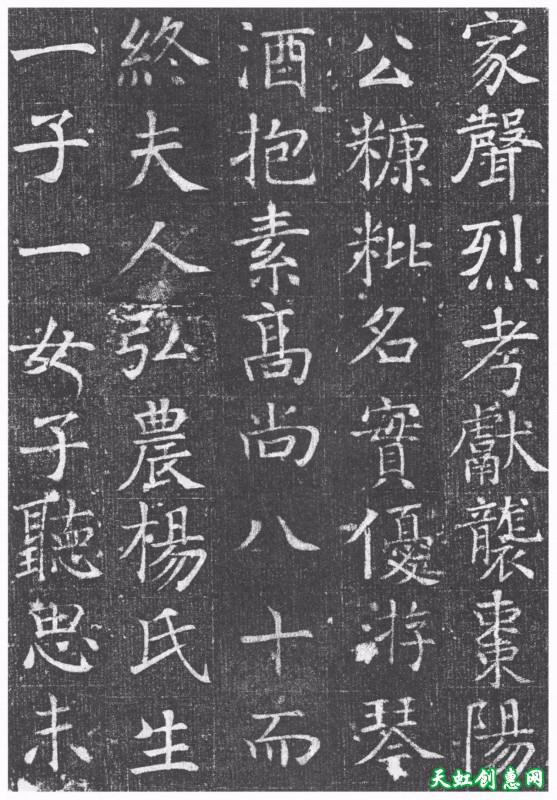 家聲烈考獻襲棗陽
公糠粃名實優游琴
酒抱素高尚八十而
終夫人弘農楊氏生
一子一女子聽思未
天虹创惠网